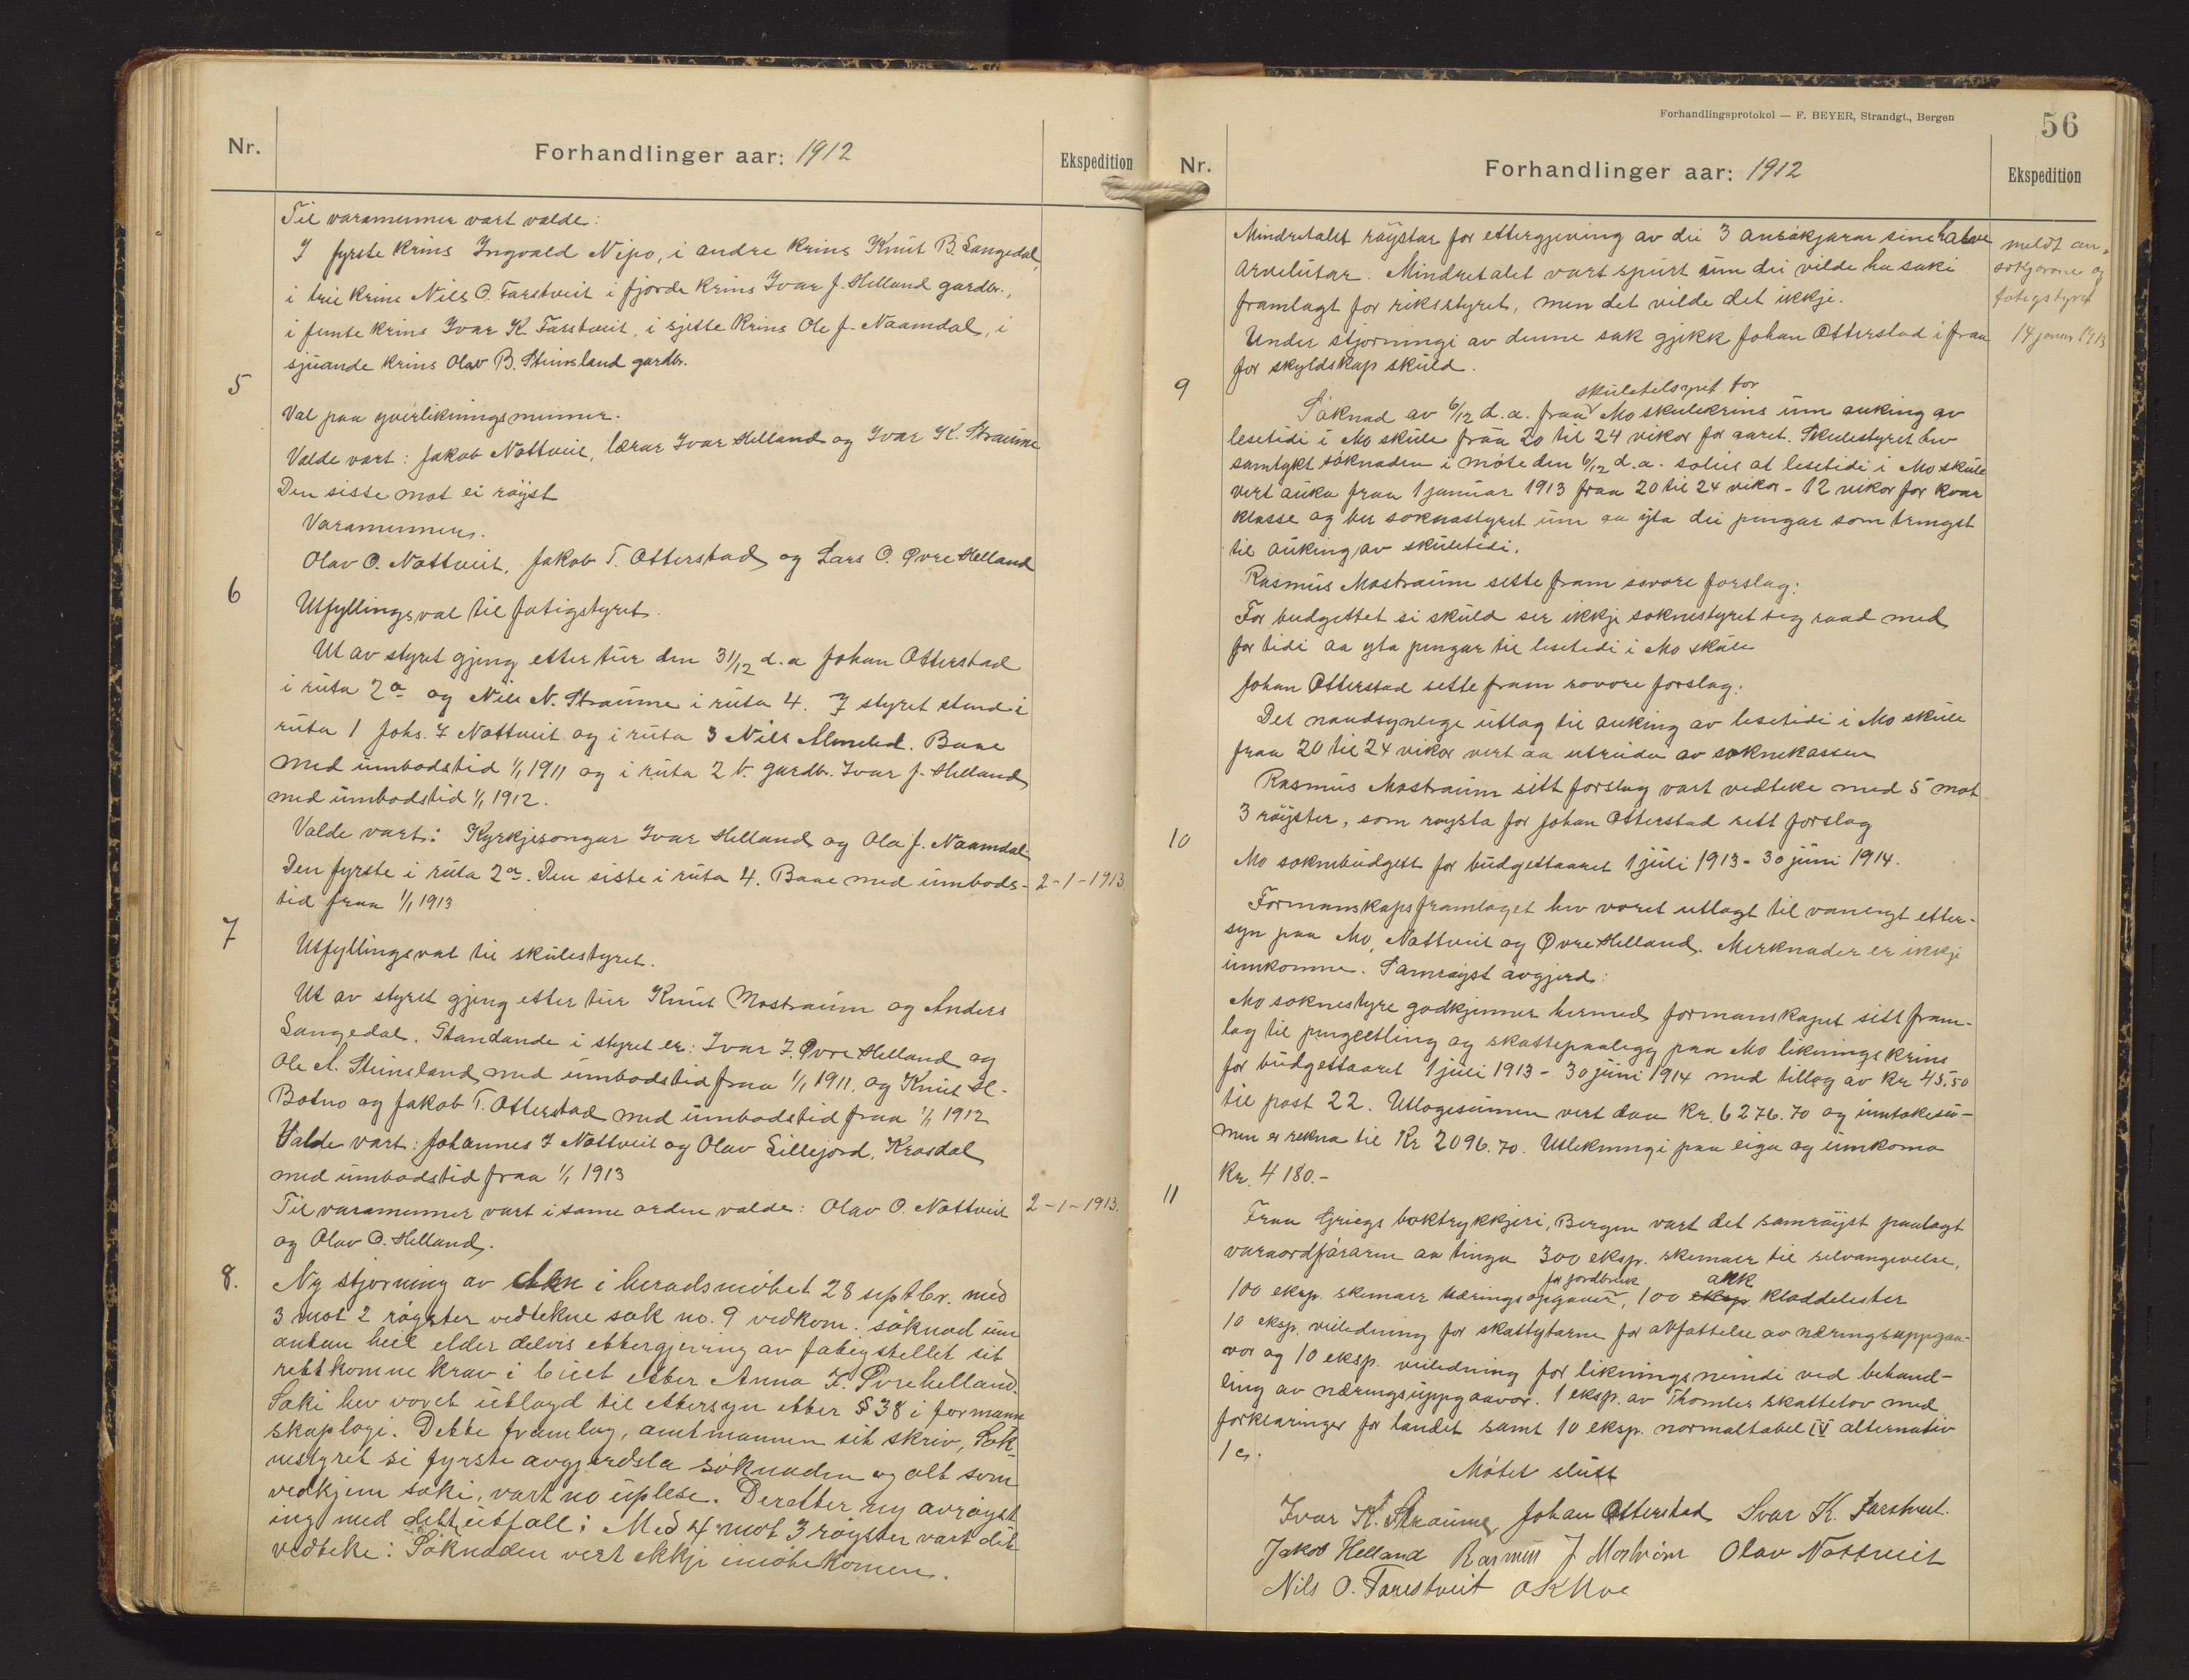 Nr.
Forhandlinger aar: 1912
Ekspedition
Til varamenner vart valde:
I fyrste krins Ingvald Nipo, i andre krins Knut B. Langedal,
i trie krins Nils O. Farstveit i fjorde krins Ivar J. Helland gardbr.,
i femte krins Ivar K. Farstveit, i sjette krins Ole J. Naamdal, i
sjuande krins Olav B. Steinsland gardbr.
5
Val paa yverlikningsmenner.
Valde vart: Jakob Nottveit, lærar Ivar Helland og Ivar K. Straume
Den siste mot ei røyst
Varamenner.
Olav O. Nottveit, Jakob T. Otterstad og Lars O. Øvre Helland
6
Utfyllingsval til fatigstyret.
Ut av styret gjeng etter tur den 31/12 d.a Johan Otterstad
i ruta 2a og Nils N. Straume i ruta 4. I styret stend i
ruta 1 Johs. I Nottveit og i ruta 3 Nils Almelid. Baae
med umbodstid 1/1 1911 og i ruta 2 b. gardbr. Ivar J. Helland
med umbodstid 1/1 1912.
Valde vart: Kyrkjesongar Ivar Helland og Ola J. Naamdal.
Den fyrste i ruta 2a. Den siste i ruta 4. Baae med umbods-
2-1-1913.
tid fraa 1/1 1913
7
Utfyllingsval til skulestyret.
Ut av styret gjeng etter tur Knut Mostraum og Anders
Langedal. Standande i styret er: Ivar I. Øvre Helland og
Ole A. Steinsland med umbodstid fraa 1/1 1911. og Knut H.
Botno og Jakob T. Otterstad med umbodstid fraa 1/1 1912
Valde vart: Johannes I Nottveit og Olav Lillejord, Krosdal
med umbodstid fraa 1/1 1913
Til varamenner vart i same orden valde: Olav O. Nottveit
2-1-1913.
og Olav O. Helland.
8.
Ny stjorning av den i heradsmøtet 28 septbr. med
3 mot 2 røyster vedtekne sak no. 9 vedkom. søknad um
anten heil elder delvis ettergjeving av fatigstellet sit
rettkomne krav i buet etter Anna I. Øvrehelland.
Saki hev voret utlagd til ettersyn etter § 38 i formann-
skaplogi. Dette framlag, amtmannen sit skriv, sok-
nestyret si fyrste avgjerdsla søknaden og alt som
vedkjem saki, vart no uplese. Deretter ny avrøyst
ing med dett utfall: Med 4 mot 3 røyster vart det
vedteke: Søknaden vert ikkje imøtekomen.
Forhandlingsprotokol — F. BEYER, Strandgt., Bergen
56
Nr.
Forhandlinger aar: 1912
Ekspedition
Mindretalet røystar for ettergjeving av dei 3 ansøkjarar sine halve
arvelutar. Mindretalet vart spurt um dei vilde ha saki
framlagt for riksstyret, men det vilde det ikkje.
Under stjorningi av denne sak gjekk Johan Otterstad ifraa
for skyldskap skuld.
meldt an-
søkjarane og
fatigstyret
14 januar 1913
9
skuletelsynet for
Søknad av 6/12 d.a. fraa Mo skulekrins um auking av
lesetidi i Mo skule fraa 20 til 24 vikor for aaret. Skulestyret hev
samtykt søknaden i møte den 6/12 d.a. soleis at lesetidi i Mo skule
vert auka fraa 1 januar 1913 fraa 20 til 24 vikor - 12 vikor for kvar
klasse og ber soknastyret um aa yta dei pengar som trengst
til auking av skuletidi.
Rasmus Mostraum sette fram sovore forslag:
For budgettet si skuld ser ikkje soknestyret seg raad med
for tidi aa yta pengar til lesetidi i Mo skule
Johan Otterstad sette fram sovore forslag:
Det naudsynlege utlag til auking av lesetidi i Mo skule
fraa 20 til 24 vikor vert aa utreida av soknekassen
Rasmus Mostraum sitt forslag vart vedteke med 5 mot
3 røyster, som røysta for Johan Otterstad sett forslag
10
Mo soknebudgett for budgettaaret 1 juli 1913 - 30 juni 1914.
Formannskapsframlaget hev voret utlagt til vanlegt etter-
syn paa Mo, Nottveit og Øvre Helland. Merknader er ikkje
innkomne. Samrøyst avgjerd:
Mo soknestyre godkjenner hermed formannskapet sitt fram-
lag til pengeetling og skattepaalegg paa Mo likningskrins
for budgettaaret 1 juli 1913 - 30 juni 1914 med tillag av Kr 45,50
til post 22. Utlogesumen vert daa Kr. 6276.70 og inntokesu-
men er rekna til Kr 2096.70. Utlikningi paa eiga og innkoma
Kr. 4180.-
11
Fraa Griegs boktrykkjeri, Bergen vart det samrøyst paalagt
varaordføraren aa tinga 300 eksp. skemaer til selvangivelse,
for jordbruk
ark
100 eksp. skemaer næringsopgaver, 100 eksp. kladdelister
10 eksp. veiledning for skattytarne for avfattelse av næringsuppgaa-
vor og 10 eksp. veiledning for likningsnemdi ved behand-
ling av næringsuppgaavor. 1 eksp. av Thomles skattelov med
forklaringer for landet samt 10 eksp. normaltabel IV alternativ
1 c.
Møtet slutt
Ivar K. Straume, Johan Otterstad Ivar K. Farstveit.
Jakob Helland Rasmus J Mostraum Olav Nottveit
Nils O. Farestveit O K Moe